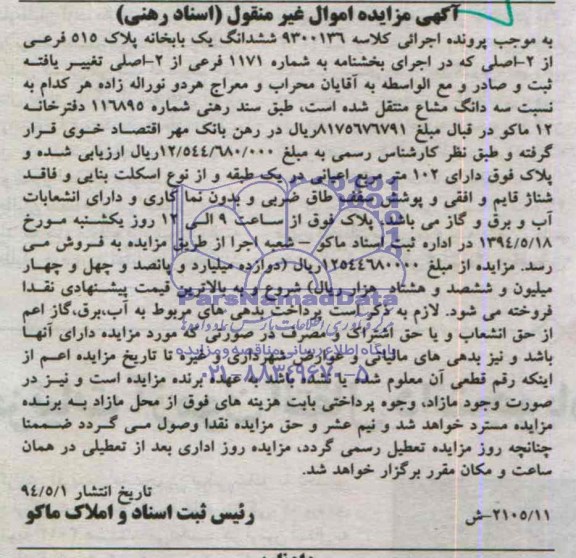 آگهی مزایده اموال غیر منقول (اسناد رهنی)
به موجب پرونده اجرائی کلاسه ۹۳۰۰۱۳۶ ششدانگ یک بابخانه پلاک ۵۱۵ فرعی
از ۲-اصلی که در اجرای بخشنامه به شماره ۱۱۷۱ فرعی از ۲-اصلی تغییر یافته
ثبت و صادر و مع الواسطه به آقایان محراب و معراج هردو نوراله زاده هر کدام به
نسبت سه دانگ مشاع منتقل شده است، طبق سند رهنی شماره ۱۱۶۸۹۵ دفترخانه
۱۲ ماکو در قبال مبلغ ۸۱۷۵۶۷۶۷۹۱ریال در رهن بانک مهر اقتصاد خوی قرار
گرفته و طبق نظر کارشناس رسمی به مبلغ ۱۲/۵۴۴/۶۸۰/۰۰۰ریال ارزیابی شده و
پلاک فوق دارای ۱۰۲ متر مربع اعیانی در یک طبقه و از نوع اسکلت بنایی و فاقد
شناژ قایم و افقی و پوشش سقف طاق ضربی و بدون نما کاری و دارای انشعابات
آب و برق و گاز می باشد. پلاک فوق از ساعت ۹ الی ۱۲ روز یکشنبه مورخ
۱۳۹۴/۵/۱۸ در اداره ثبت اسناد ماکو – شعبه اجرا از طریق مزایده به فروش می
رسد. مزایده از مبلغ ۱۲۵۴۴۶۸۰۰۰۰ریال (دوازده میلیارد و پانصد و چهل و چهار
میلیون و ششصد و هشتاد هزار ریال) شروع و به بالاترین قیمت پیشنهادی نقدا
ParsNamadData
فروخته می شود. لازم به ذکر است پرداخت بدهی های مربوط به آب،برق،گاز اعم
از حق انشعاب و یا حق اشتراک و مصرف در صورتی که مورد مزایده دارای آنها
باشد و نیز بدهی های مالیاتی و عوارض شهرداری و غیره تا تاریخ مزایده اعم از
پایگاه اطلاع رسانی مناقصه و مزایده
اینکه رقم قطعی آن معلوم شده یا نشده باشد به عهده برنده مزایده است و نیز در
۰۲۱-۸۸۳۴۹۶۷۰-۵
صورت وجود مازاد، وجوه پرداختی بابت هزینه های فوق از محل مازاد به برنده
مزایده مسترد خواهد شد و نیم عشر و حق مزایده نقدا وصول می گردد ضمنا
چنانچه روز مزایده تعطیل رسمی گردد، مزایده روز اداری بعد از تعطیلی در همان
ساعت و مکان مقرر برگزار خواهد شد.
تاریخ انتشار ۹۴/۵/۱
رئیس ثبت اسناد و املاک ماکو
۲۱۰۵/۱۱-ش